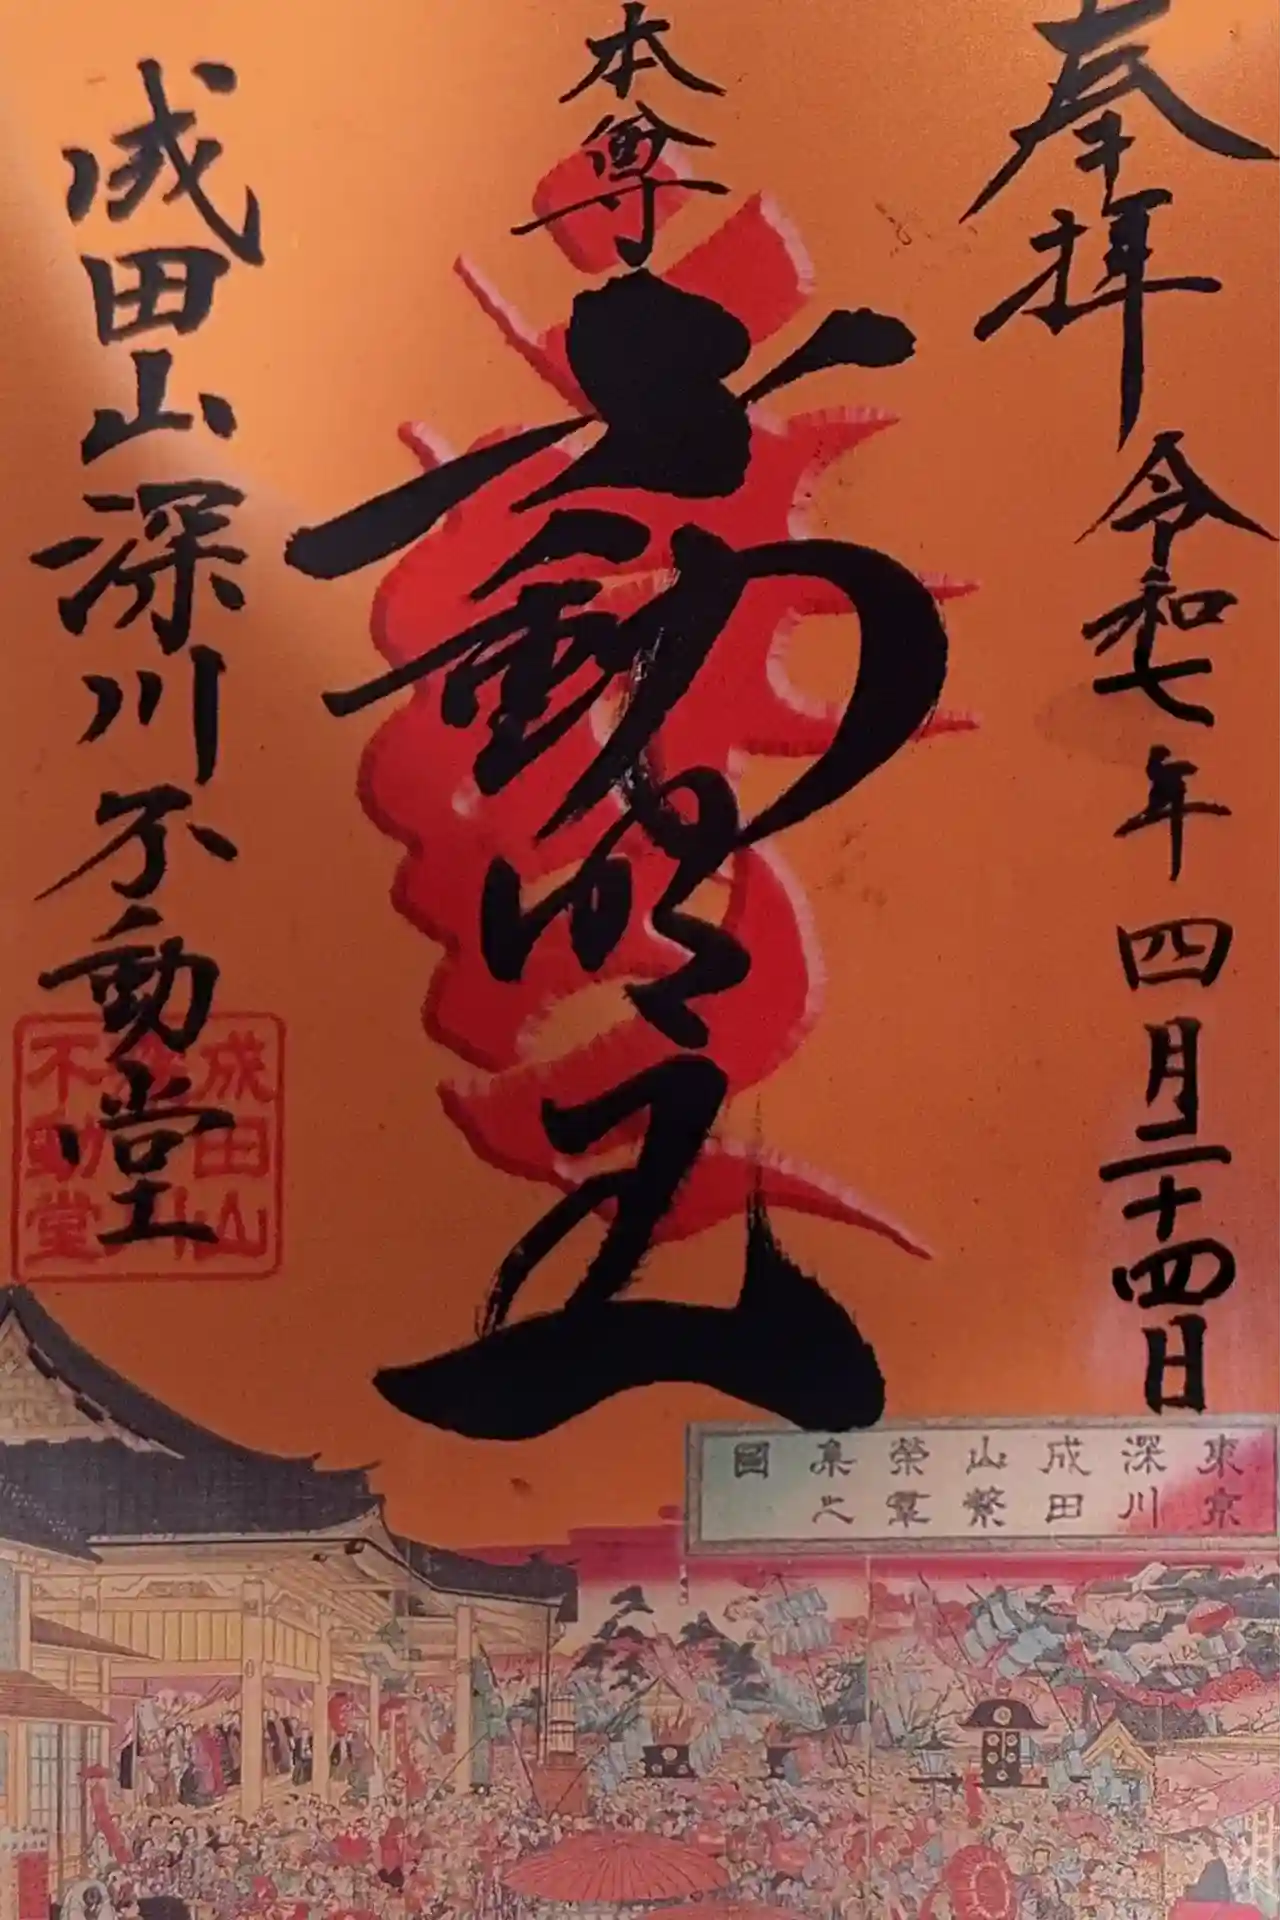 奉拝
令和七年四月二十四日
本尊
不動明王
成田山深川不動堂
成田山
深川
不動堂
東京
深川
成田
山繁
榮羣
集之
圖